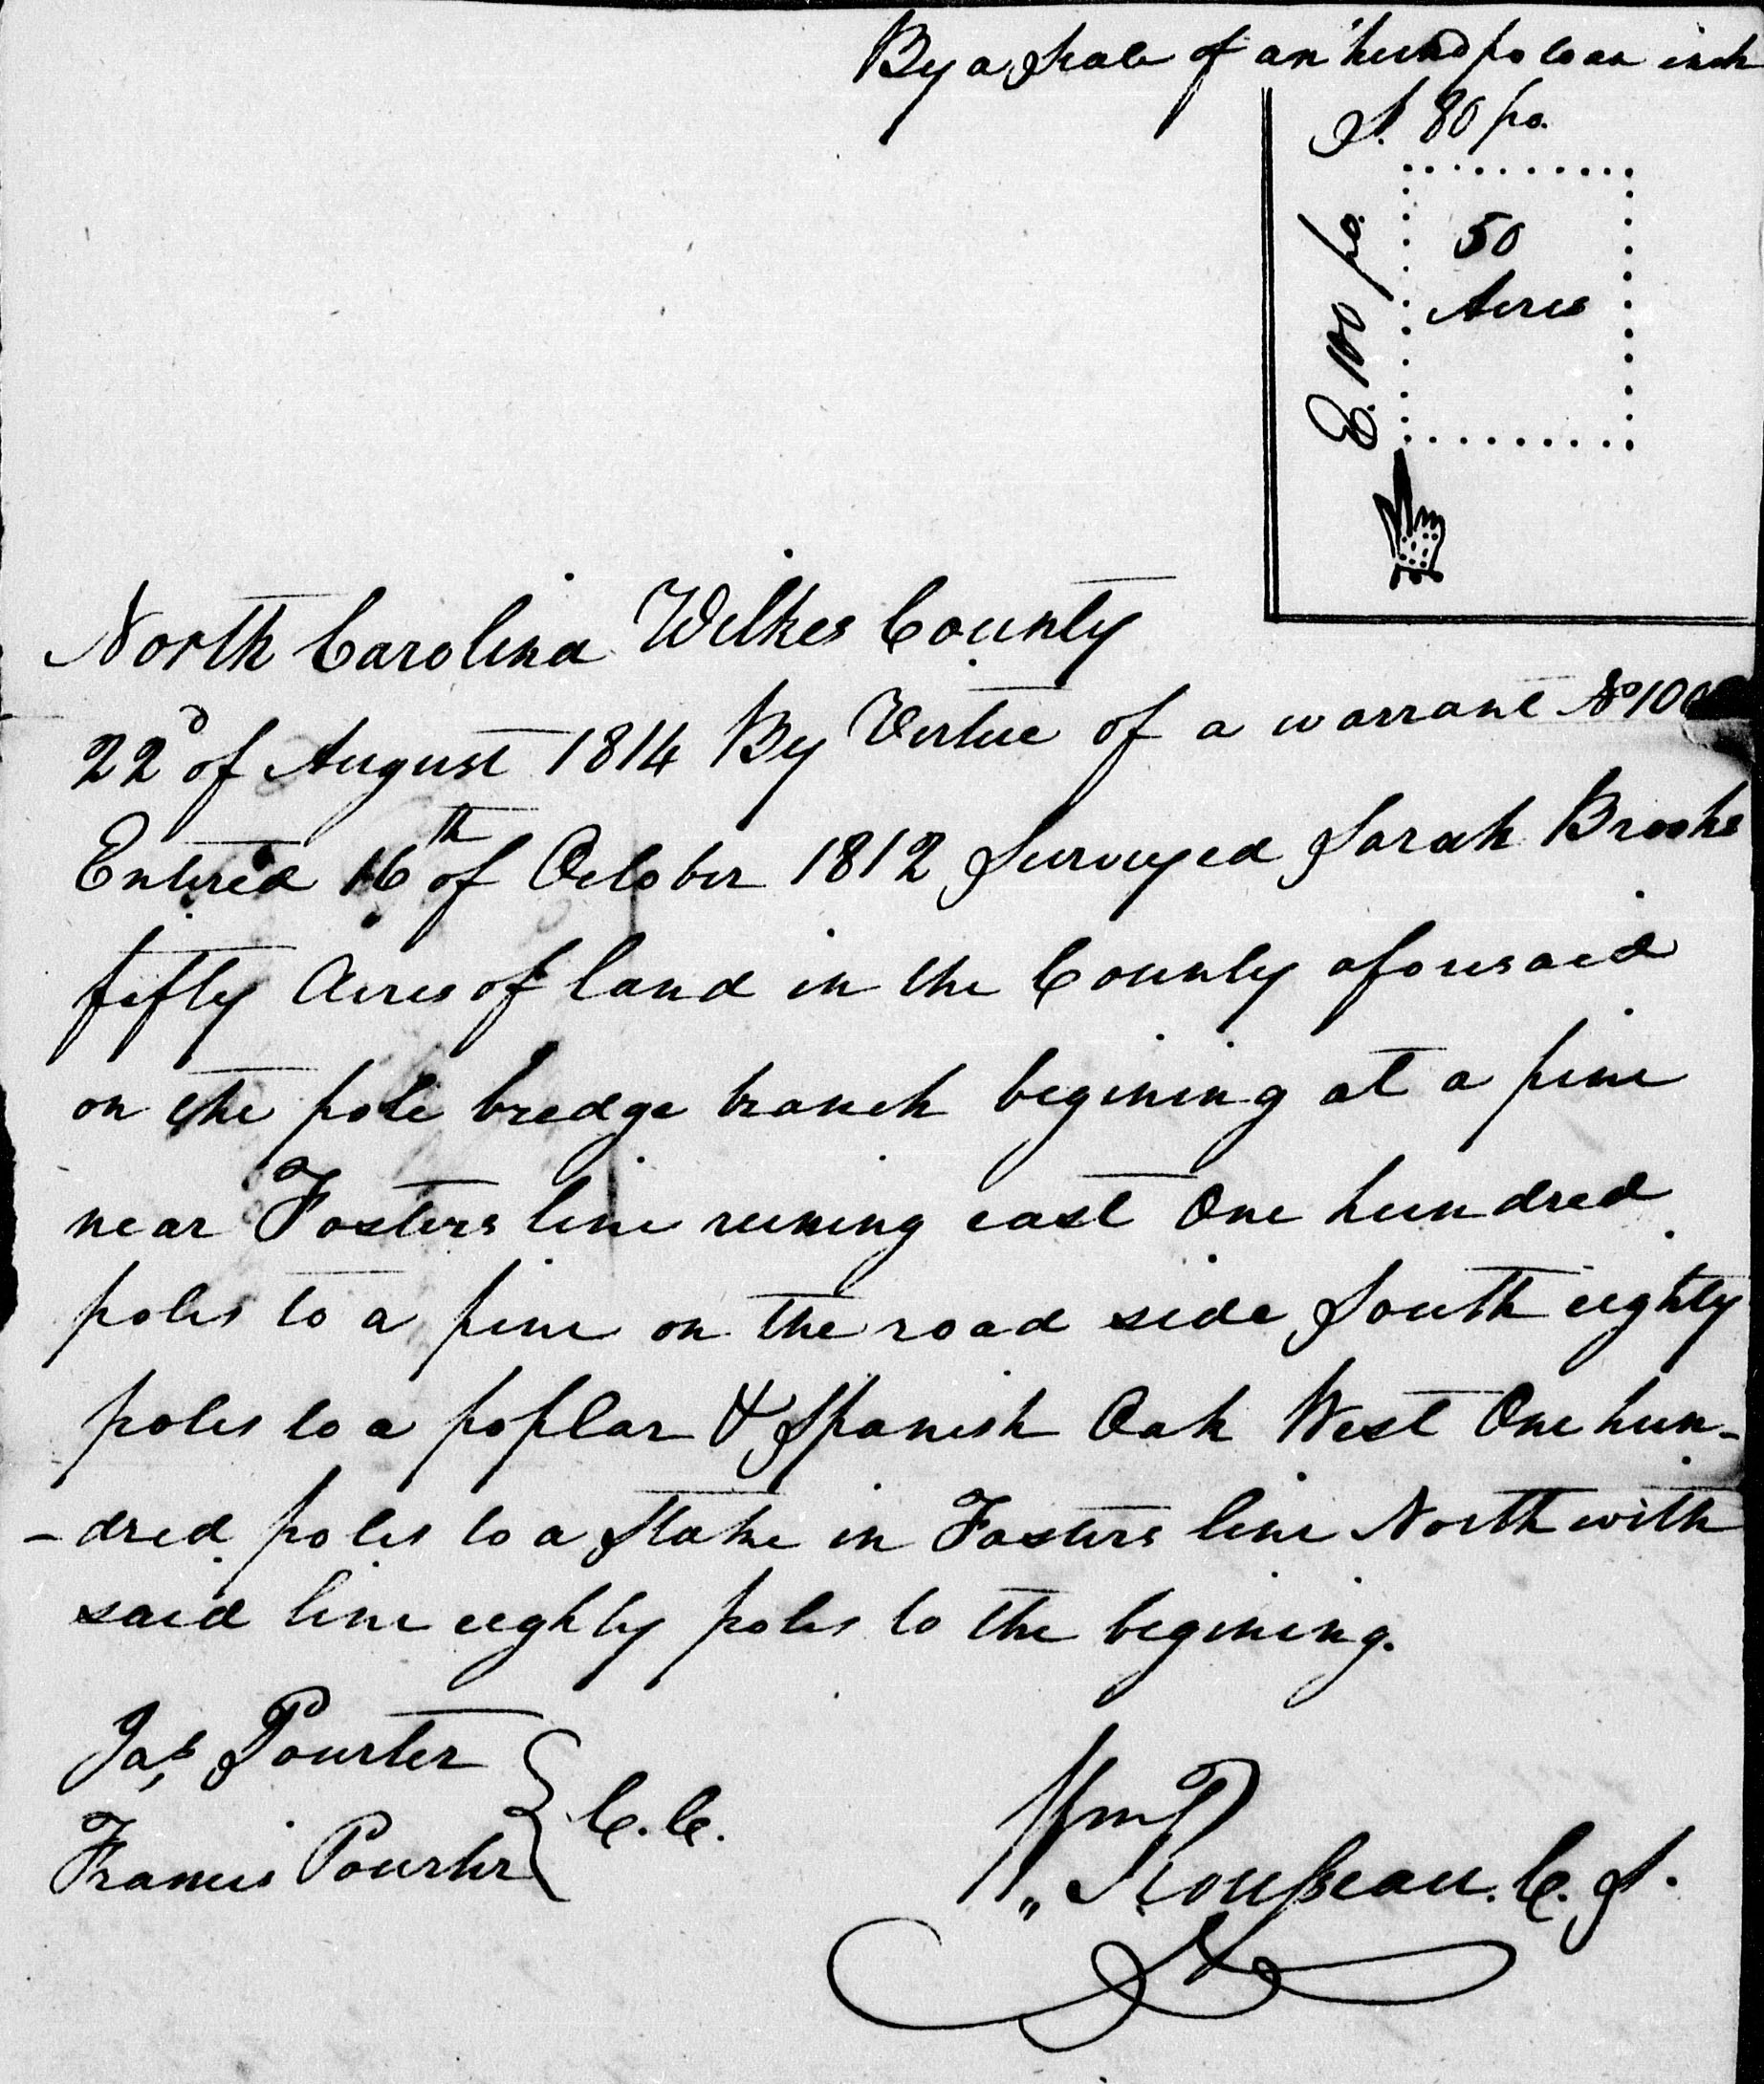 By a Scale of an hund po to an inch
S. 80 po.
E. 100 po.
50
Acres
North Carolina Wilkes County
22d of August 1814 By Vertue of a warrant No 100
Entered 16th of October 1812 Surveyed Sarah Brooks
fifty Acres of land in the County aforesaid
on the pole bredge branch begining at a pine
near Fosters line runing east One hundred
poles to a pine on the road side South eighty
poles to a poplar & Spanish Oak West One hun-
-dred poles to a Stake in Fosters line North with
said line eighty poles to the begining.
Jas Pourter
Francis Pourter
C.C.
Wm P
Rousseau. C. S.